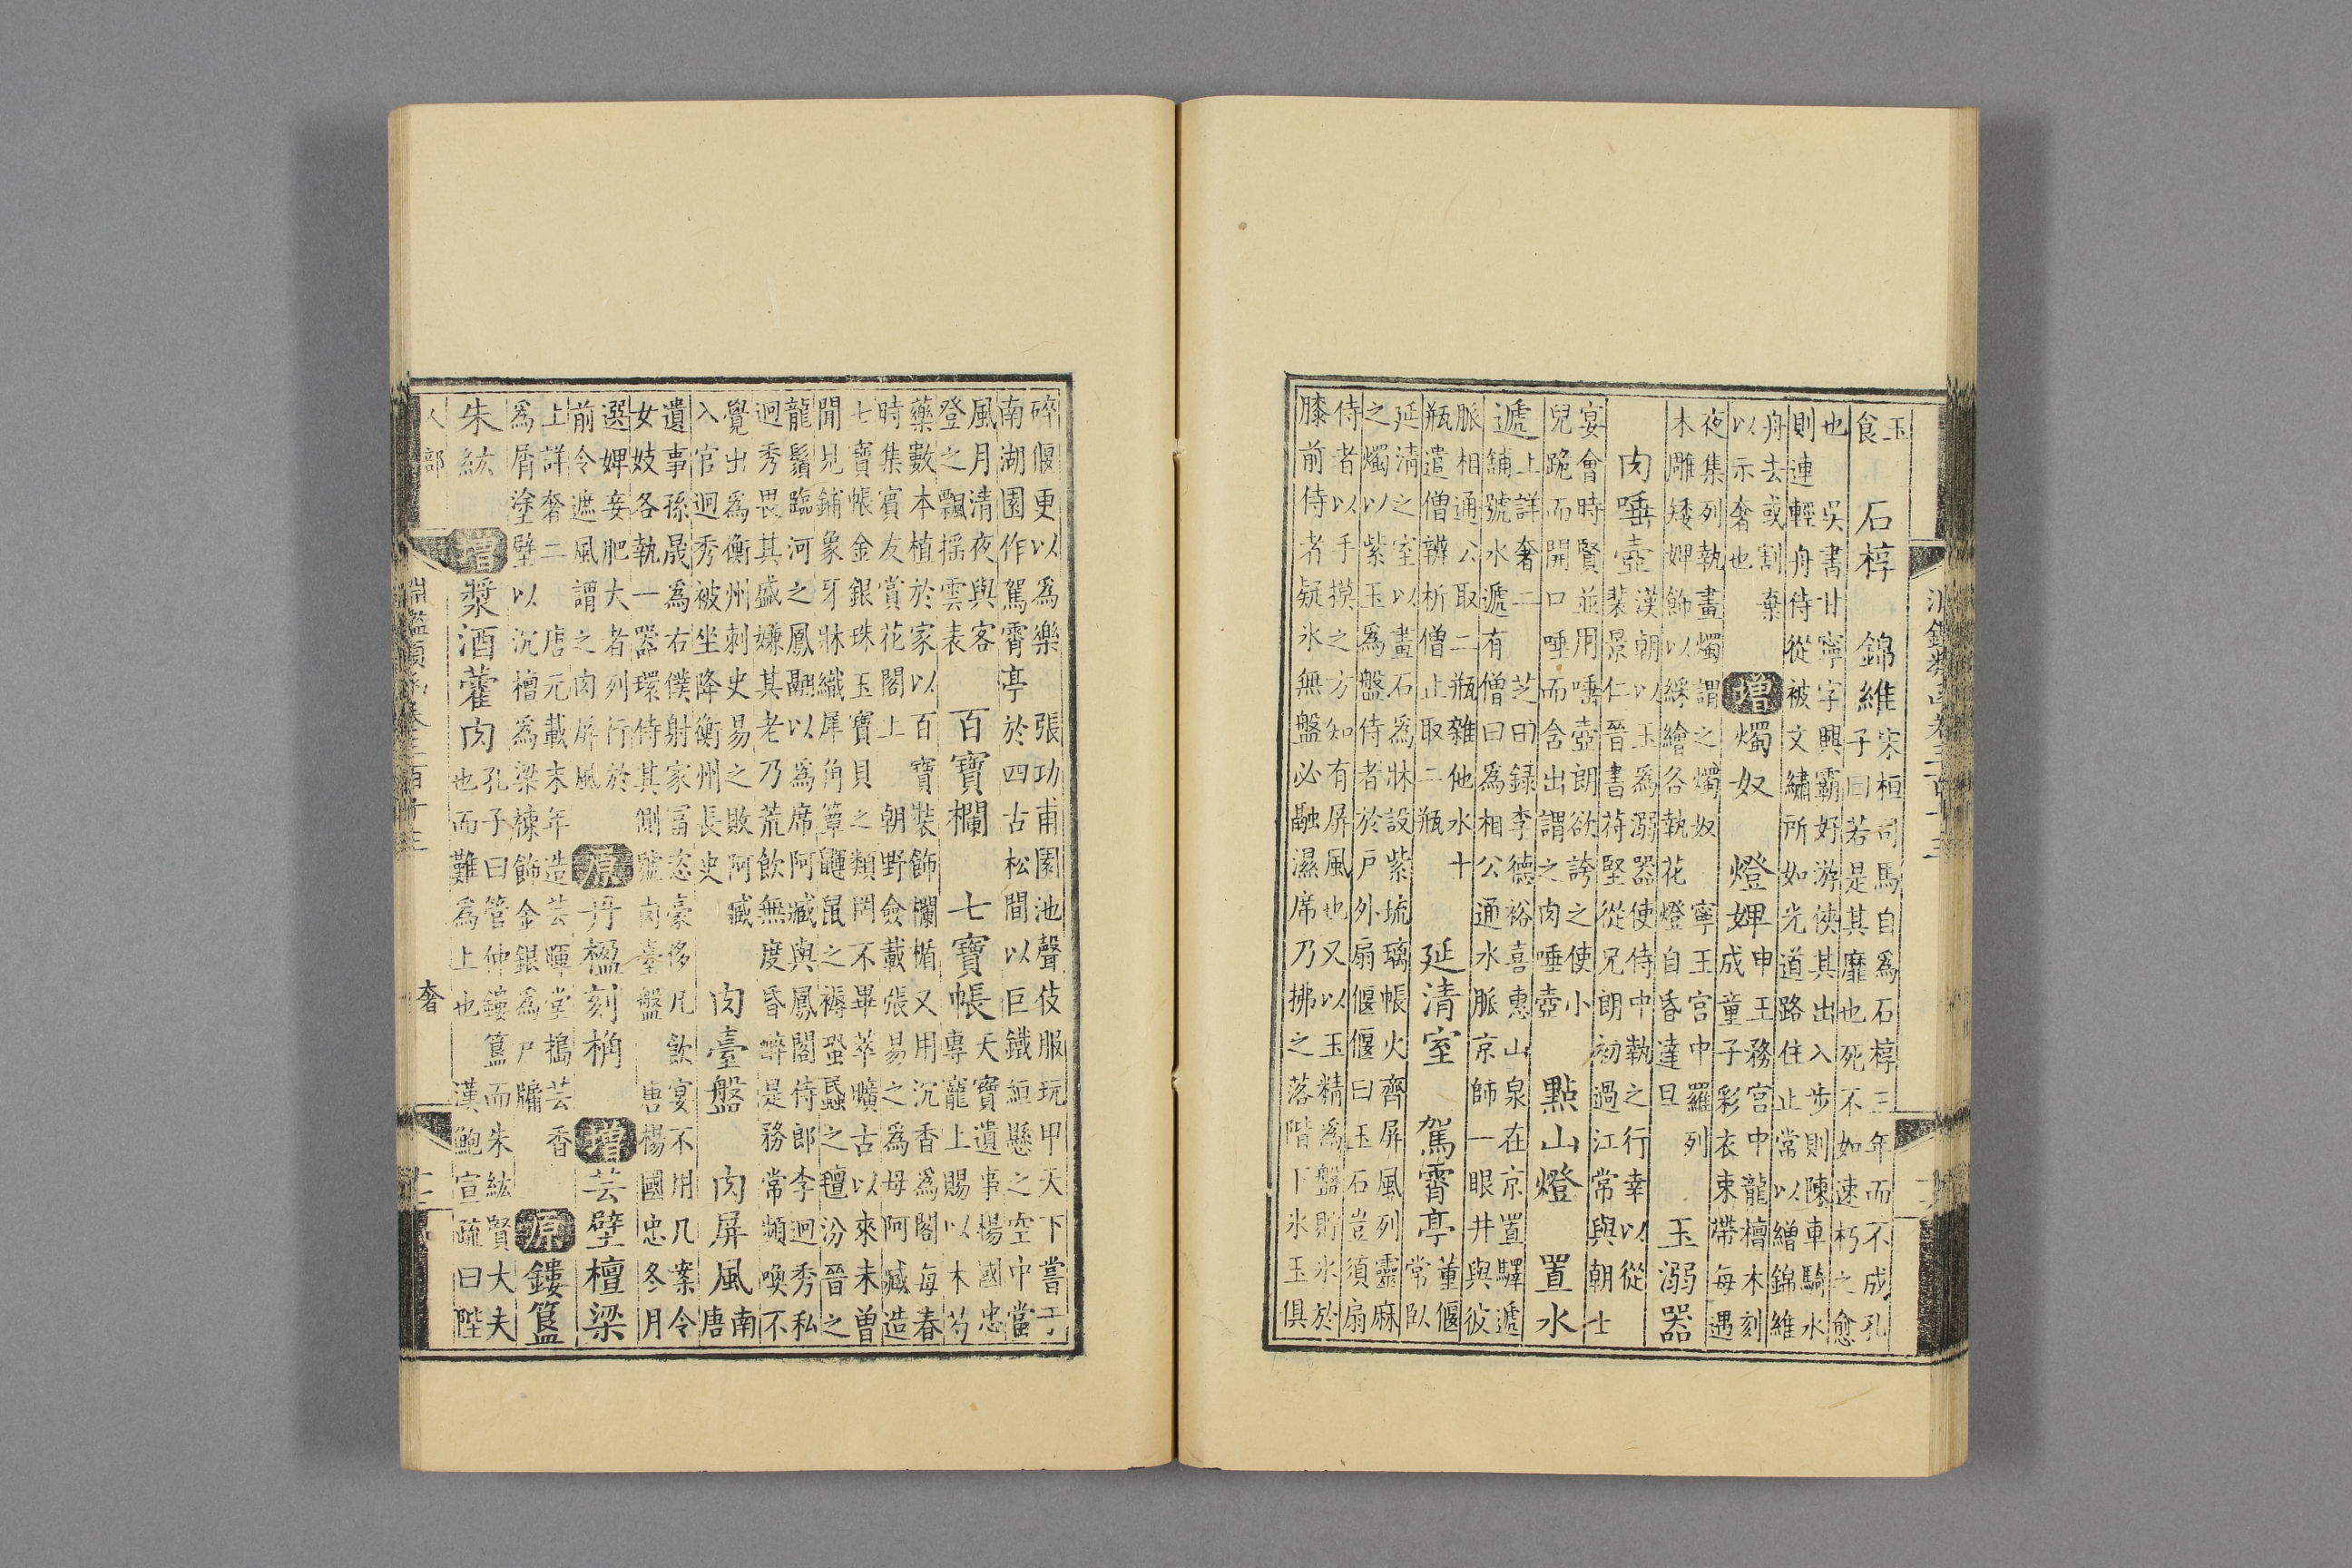 淵鑑類函卷三百十三
玉
食
石椁　錦維
宋桓司馬自爲石椁三年而不成孔
子曰若是其靡也死不如速朽之愈
也　吳書甘寧字興霸好游俠其出入步則陳車騎水
則連輕舟侍從被文繡所如光道路住止常以繒錦維
舟去或割棄
以示奢也
增燭奴　燈婢
申王務宮中龍檀木刻
成童子彩衣束帶每遇
夜集列執畫燭謂之燭奴　寧王宮中羅列
木雕矮婢飾以綵繪各執花燈自昏達旦
玉溺器
肉唾壺
漢朝以玉爲溺器使侍中執之行幸以從
裴景仁晉書苻堅從兄朗初過江常與朝士
宴會時賢並用唾壺朗欲誇之使小
兒跪而開口唾而含出謂之肉唾壺
點山燈　置水
遞
上詳奢二　芝田録李德裕喜惠山泉在京置驛遞
鋪號水遞有僧曰爲相公通水脈京師一眼井與彼
脈相通公取二瓶雜他水十
瓶遣僧辨析僧止取二瓶
延清室　駕霄亭
董偃
常臥
延清之室以畫石爲牀設紫琉璃帳火齊屏風列靈麻
之燭以紫玉爲盤侍者於戶外扇偃偃曰玉石豈須扇
侍者以手摸之方知有屏風也又以玉精爲盤貯氷於
膝前侍者疑氷無盤必融濕席乃拂之落階下氷玉俱
碎偃更以爲樂　張功甫園池聲伎服玩甲天下嘗于
南湖園作駕霄亭於四古松間以巨鐵絙懸之空中當
風月清夜與客
登之飄搖雲表
百寶欄　七寶帳
天寶遺事楊國忠
專寵上賜以木芍
藥數本植於家以百寶裝飾欄楯又用沉香爲閣每春
時集賓友賞花閣上　朝野僉載張易之爲母阿臧造
七寶帳金銀珠玉寶貝之類罔不畢萃曠古以來未曾
聞見鋪象牙牀織犀角簟鼲鼠之褥蛩䖟之氊汾晉之
龍鬚臨河之鳳翮以爲席阿臧與鳳閣侍郎李迥秀私
迥秀畏其盛嫌其老乃荒飲無度昏醉是務常頻喚不
覺出爲衡州刺史易之敗阿臧
入官迥秀被坐降衡州長史
肉臺盤　肉屏風
南
唐
遺事孫晟爲右僕射家富恣豪侈凡飲宴不用几案令
女妓各執一器環侍其側號肉臺盤　唐楊國忠冬月
選婢妾肥大者列行於
前令遮風謂之肉屏風
原丹楹刻桷　增芸壁檀梁
上詳奢二　唐元載末年造芸暉堂搗芸香
爲屑塗壁以沉檀爲梁棟飾金銀爲戶牖
原鏤簋
朱紘　增漿酒藿肉
孔子曰管仲鏤簋而朱紘賢大夫
也而難爲上也　漢鮑宣疏曰陛
人部　淵鑑類函卷三百十三　奢